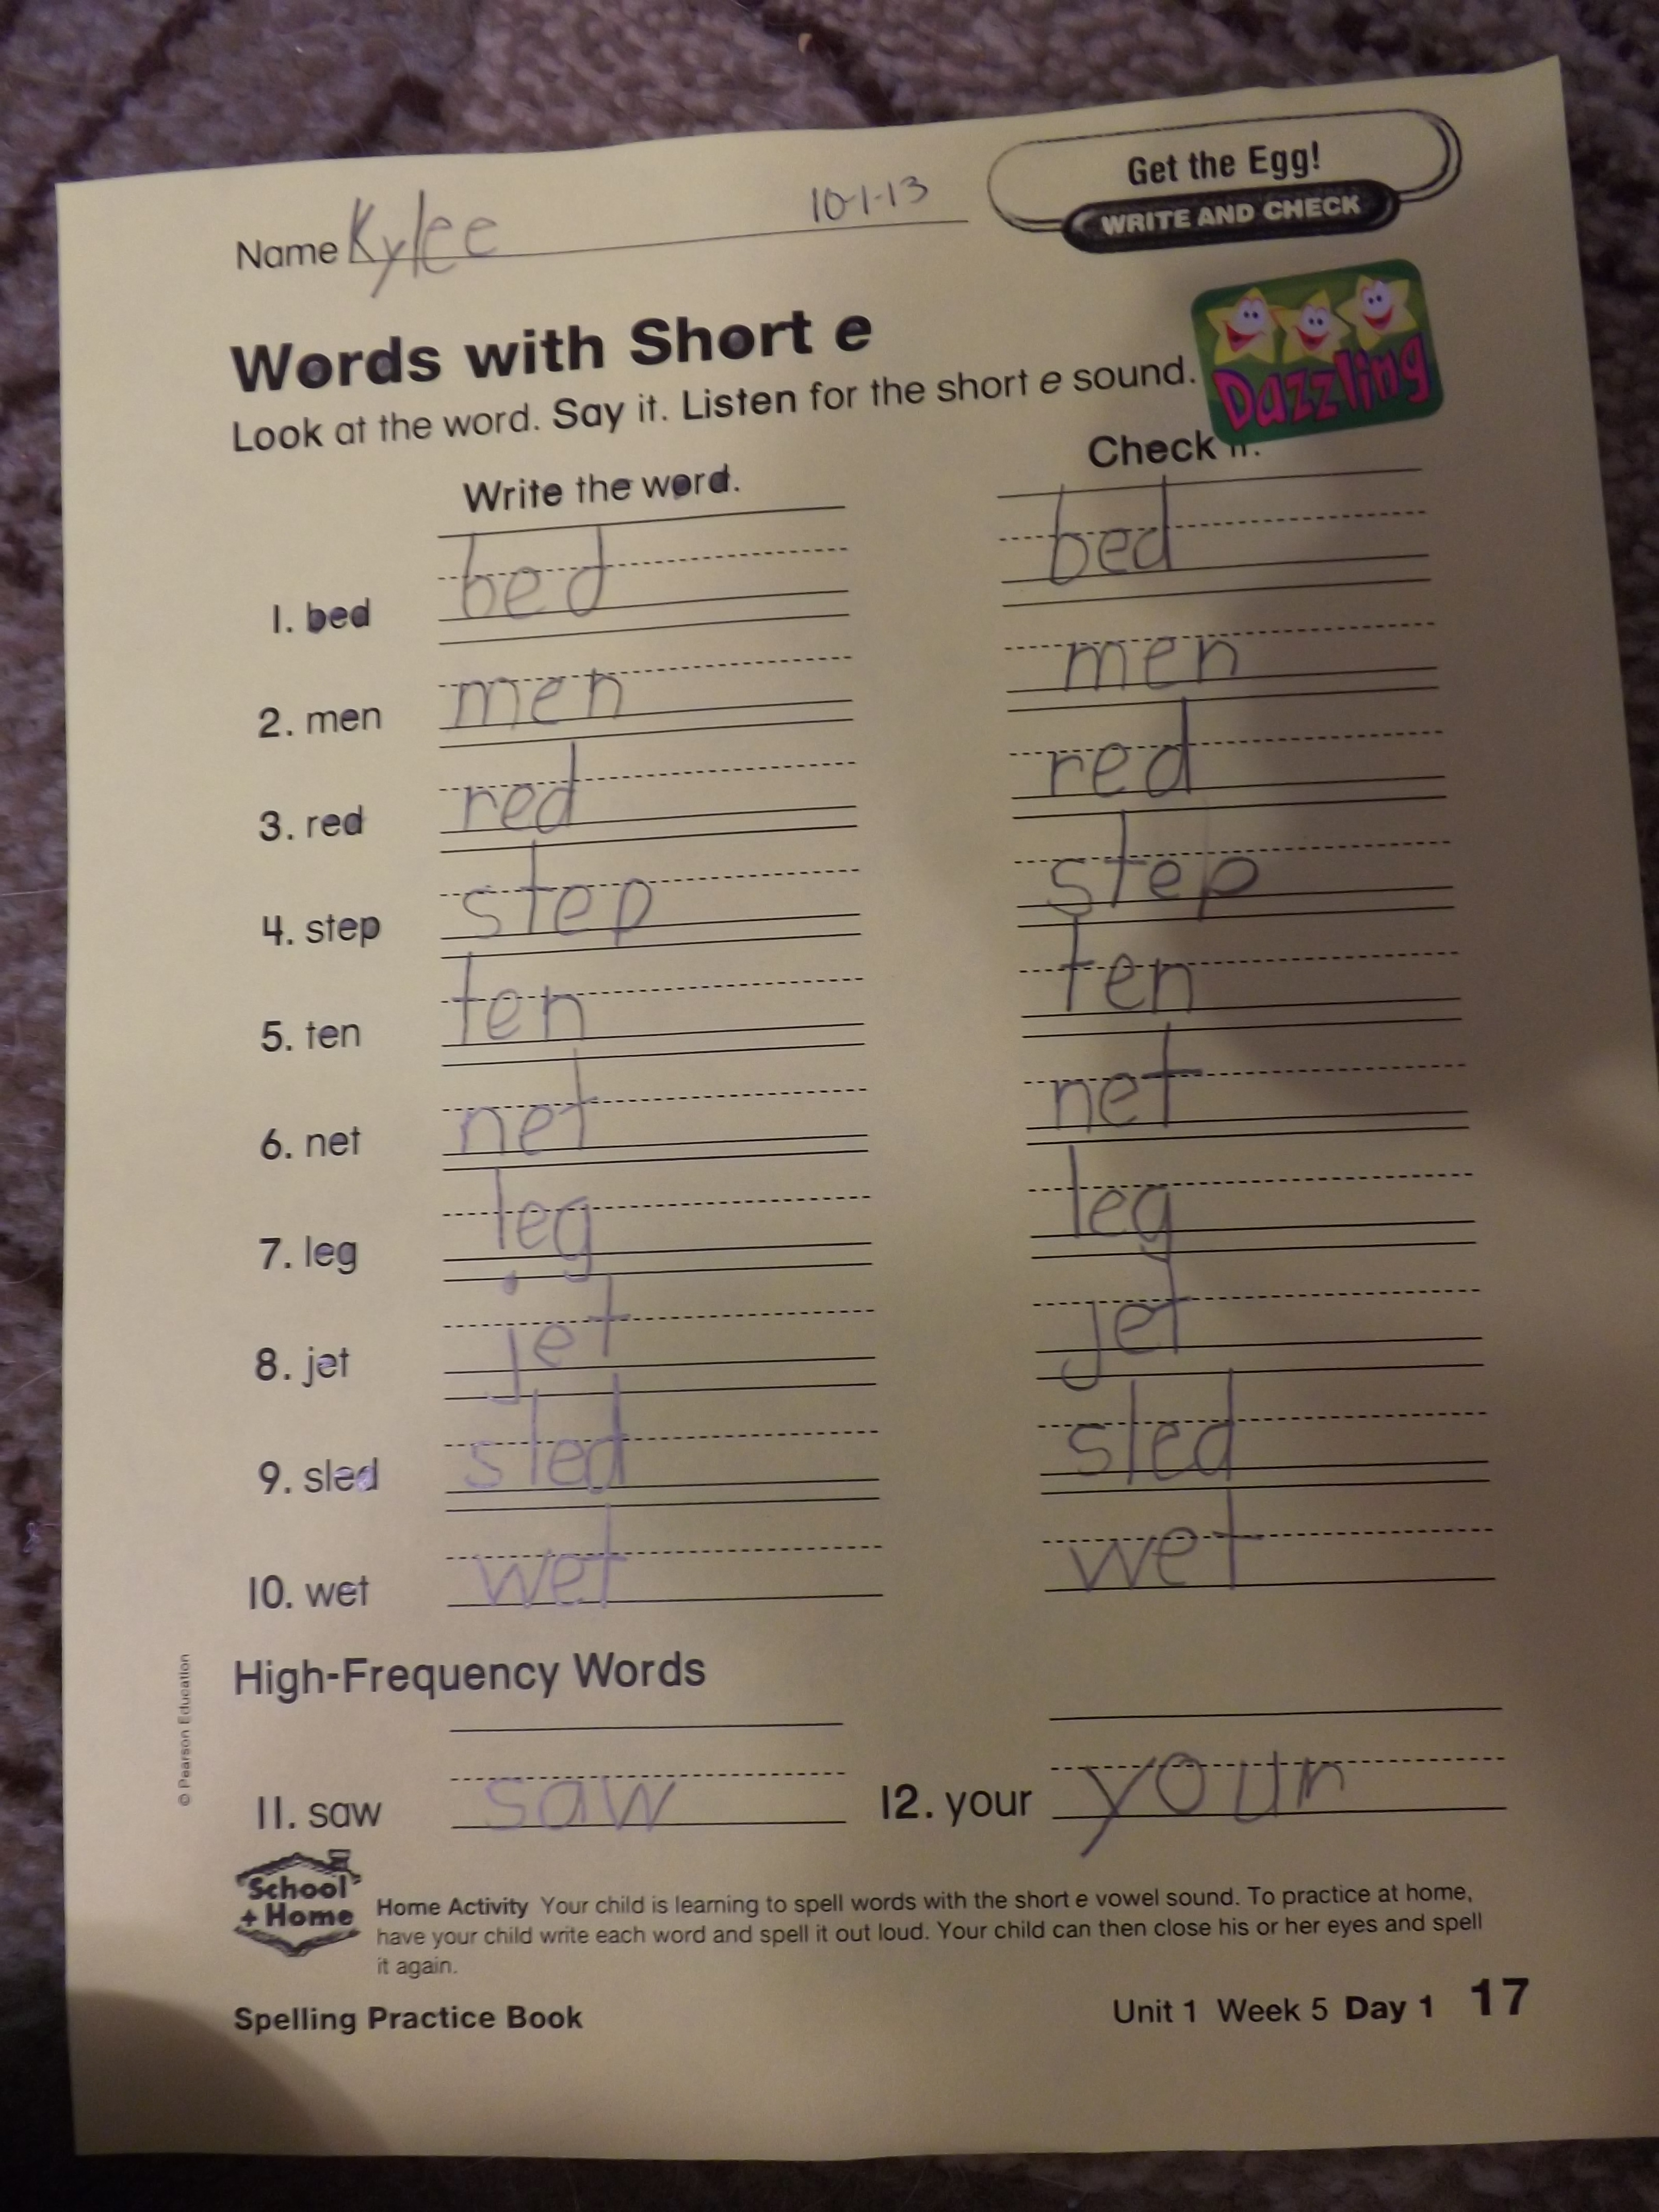 Get the Egg!
WRITE AND CHECK
Name Kylee 10-1-13
Words with Short e
Dazzling
Look at the word. Say it. Listen for the short e sound.
Write the word. Check it.
1. bed bed bed
2. men men men
3. red red red
4. step step step
5. ten ten ten
6. net net net
7. leg leg leg
8. jet jet jet
9. sled sled sled
10. wet wet wet
High-Frequency Words
11. saw saw 12. your your
© Pearson Education
School
+ Home
Home Activity Your child is learning to spell words with the short e vowel sound. To practice at home,
have your child write each word and spell it out loud. Your child can then close his or her eyes and spell
it again.
Spelling Practice Book Unit 1 Week 5 Day 1 17